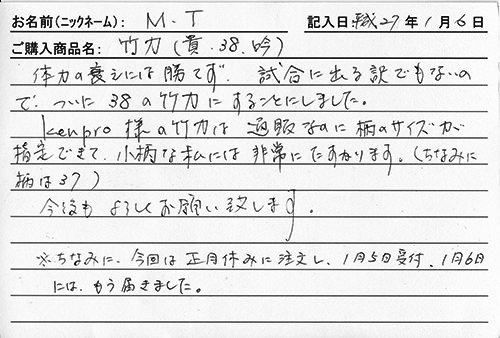 お名前(ニックネーム): M.T 記入日 平成27年1月6日
ご購入商品名: 竹刀(貴.38.吟)
体力の衰えには勝てず、試合に出る訳でもないの
で、ついに38の竹刀にすることにしました。
kenpro様の竹刀は通販なのに柄のサイズが
指定できて、小柄な私には非常にたすかります。(ちなみに
柄は37)
今後もよろしくお願い致します。
※ちなみに、今回は正月休みに注文し、1月5日受付、1月6日
には、もう届きました。